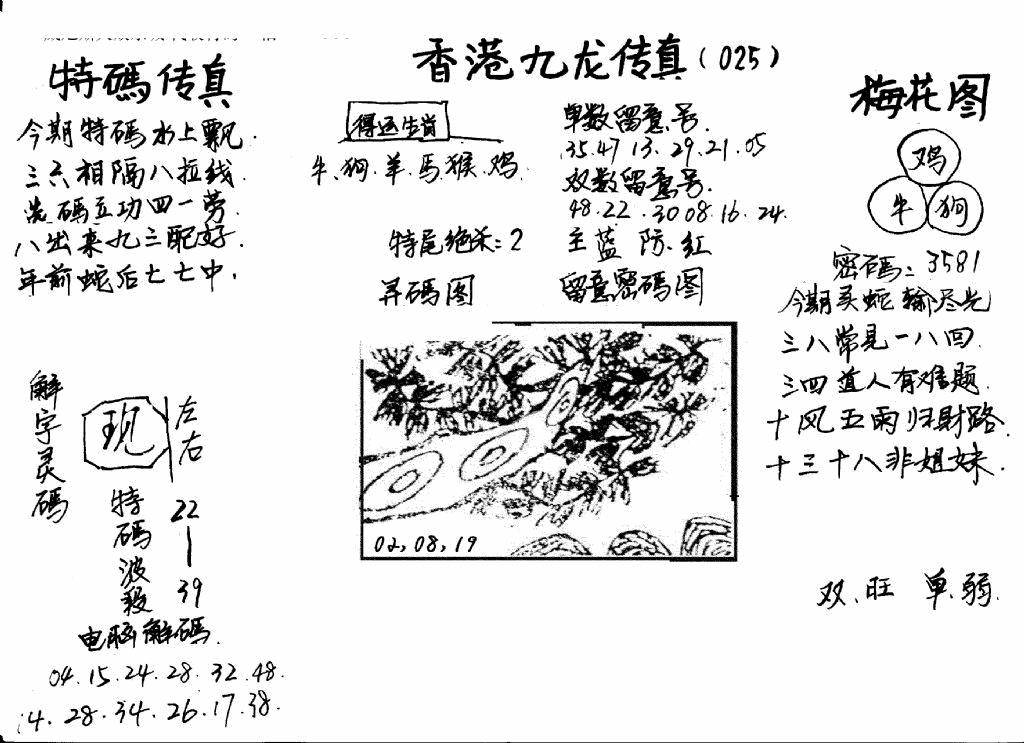 香港九龙传真(025)
特碼传真
今期特碼水上飘.
三六相隔八拉线.
选碼立功四一劳.
八出来九三配好.
年前蛇后七七中.
得运生肖
牛.狗.羊.馬.猴.鸡.
特尾绝杀:2
单数留意号.
35.47 13.29.21.05
双数留意号.
48.22.30 08.16.24.
主蓝 防.红
梅花图
鸡
牛 狗
密碼:3581
今期买蛇输尽光
三八常見一八回.
三四道人有难题.
十风五雨归財路.
十三十八非姐妹.
双.旺 单.弱.
寻碼图
留意密碼图
02,08,19
解字灵碼
现
左右
特碼波段
22
39
电脑解碼.
04.15.24.28.32.48.
14.28.34.26.17.38.